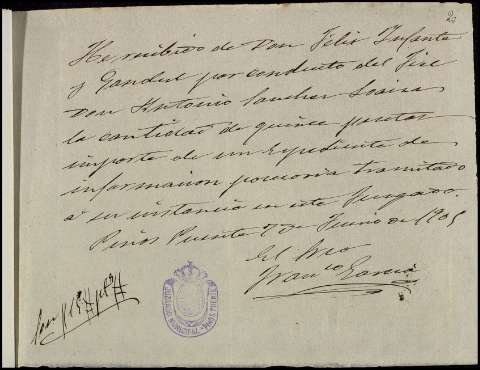 2
He recibido de Don Felix Infante
y Gandul por conducto del Sise
Don Antonio Sanchez Loaisa
la cantidad de quince pesetas
importe de un Expediente de
informacion posesoria tramitado
a su instancia en este Juzgado.
Piños Puente 7 de Junio de 1905
El Srio
Franco Garcia
Son p 15 pts
JUZGADO MUNICIPAL PINOS PUENTE